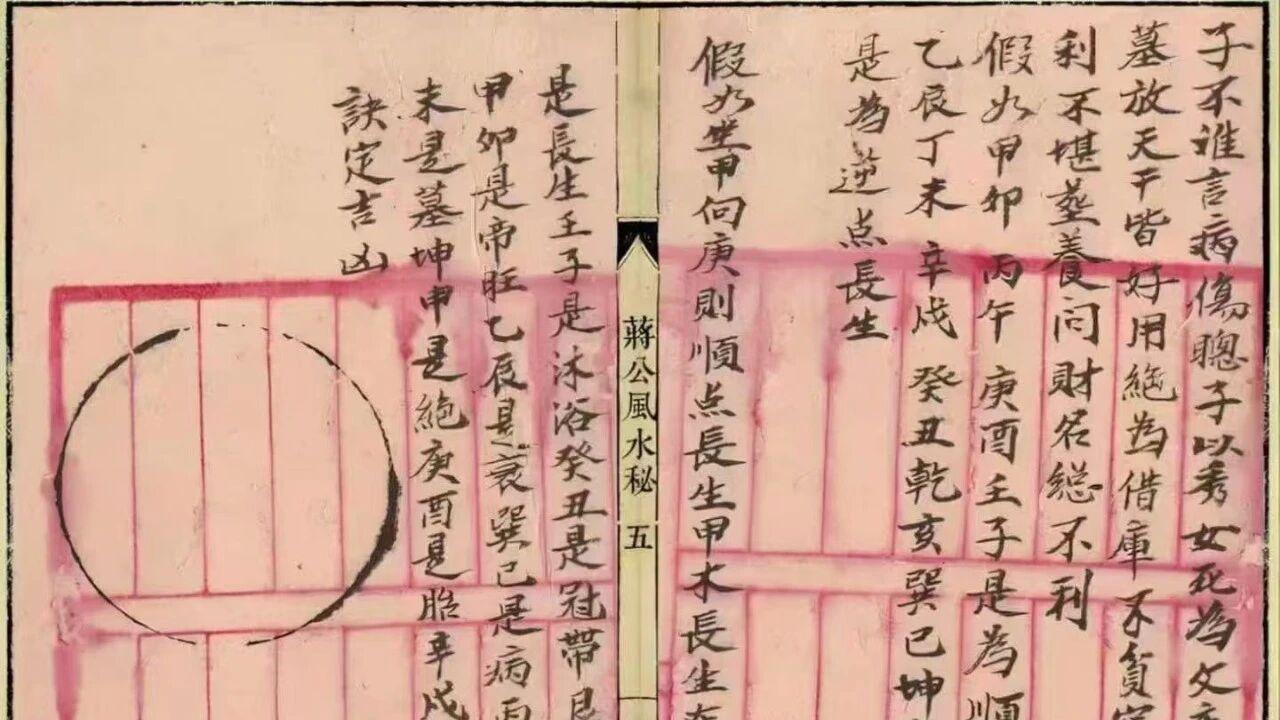 子不誰言病傷聰子以秀女死為文
墓放天干皆好用絕為借庫不貧
利不堪塟養问財名総不利
假如甲卯丙午庚酉壬子是為順
乙辰丁未辛戌癸丑乾亥巽巳坤
是為逆点長生
假如坐甲向庚則順点長生甲木長生在
蔣公風水秘 五
是長生壬子是沐浴癸丑是冠帶艮
甲卯是帝旺乙辰是衰巽巳是病丙
未是墓坤申是絕庚酉是胎辛戌
訣定吉凶